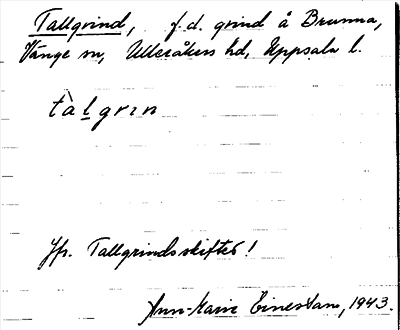 Tallgrind, f.d. grind å Brunna,
Vänge sn, Ulleråkers hd, Uppsala l.
tàlgrın
Jfr. Tallgrindsskiftet!
Ann-Marie Einerstam, 1943.